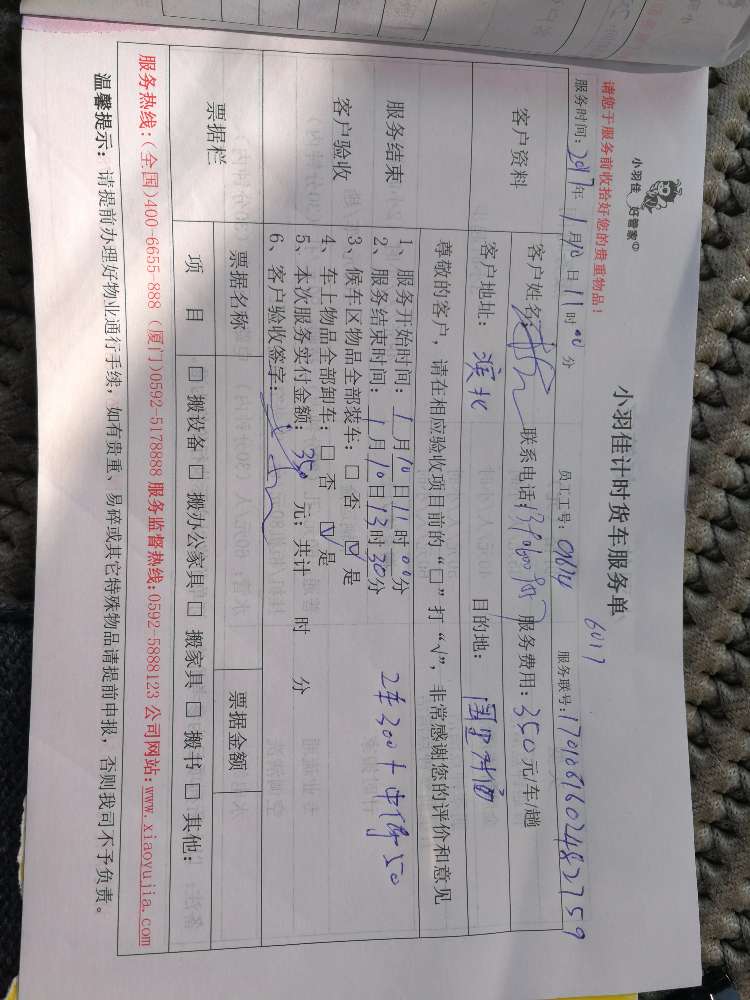 小羽佳 好管家
小羽佳计时货车服务单
6017
请您于服务前收拾好您的贵重物品！
服务时间：2017年1月10日11时00分 员工工号：09614 服务联号：17010616024827159
客户资料
客户姓名： 联系电话： 服务费用：350元/车/趟
客户地址：滨北 目的地：
尊敬的客户，请在相应验收项目前的“□”打“√”，非常感谢您的评价和意见
服务结束
客户验收
1、服务开始时间：1月10日11时00分
2、服务结束时间：1月10日13时30分
3、候车区物品全部装车：□ 否 ☑ 是
4、车上物品全部卸车：□ 否 ☑ 是
5、本次服务实付金额：350元；共计 时 分
6、客户验收签字：
300+ 50
票据栏
票据名称 票据金额
项 目 □ 搬设备 □ 搬办公家具 □ 搬家具 □ 搬书 □ 其他：
服务热线：(全国)400-6655-888 (厦门)0592-5178888 服务监督热线：0592-5888123 公司网站：www.xiaoyujia.com
温馨提示：请提前办理好物业通行手续，如有贵重、易碎或其它特殊物品请提前申报，否则我司不予负责。